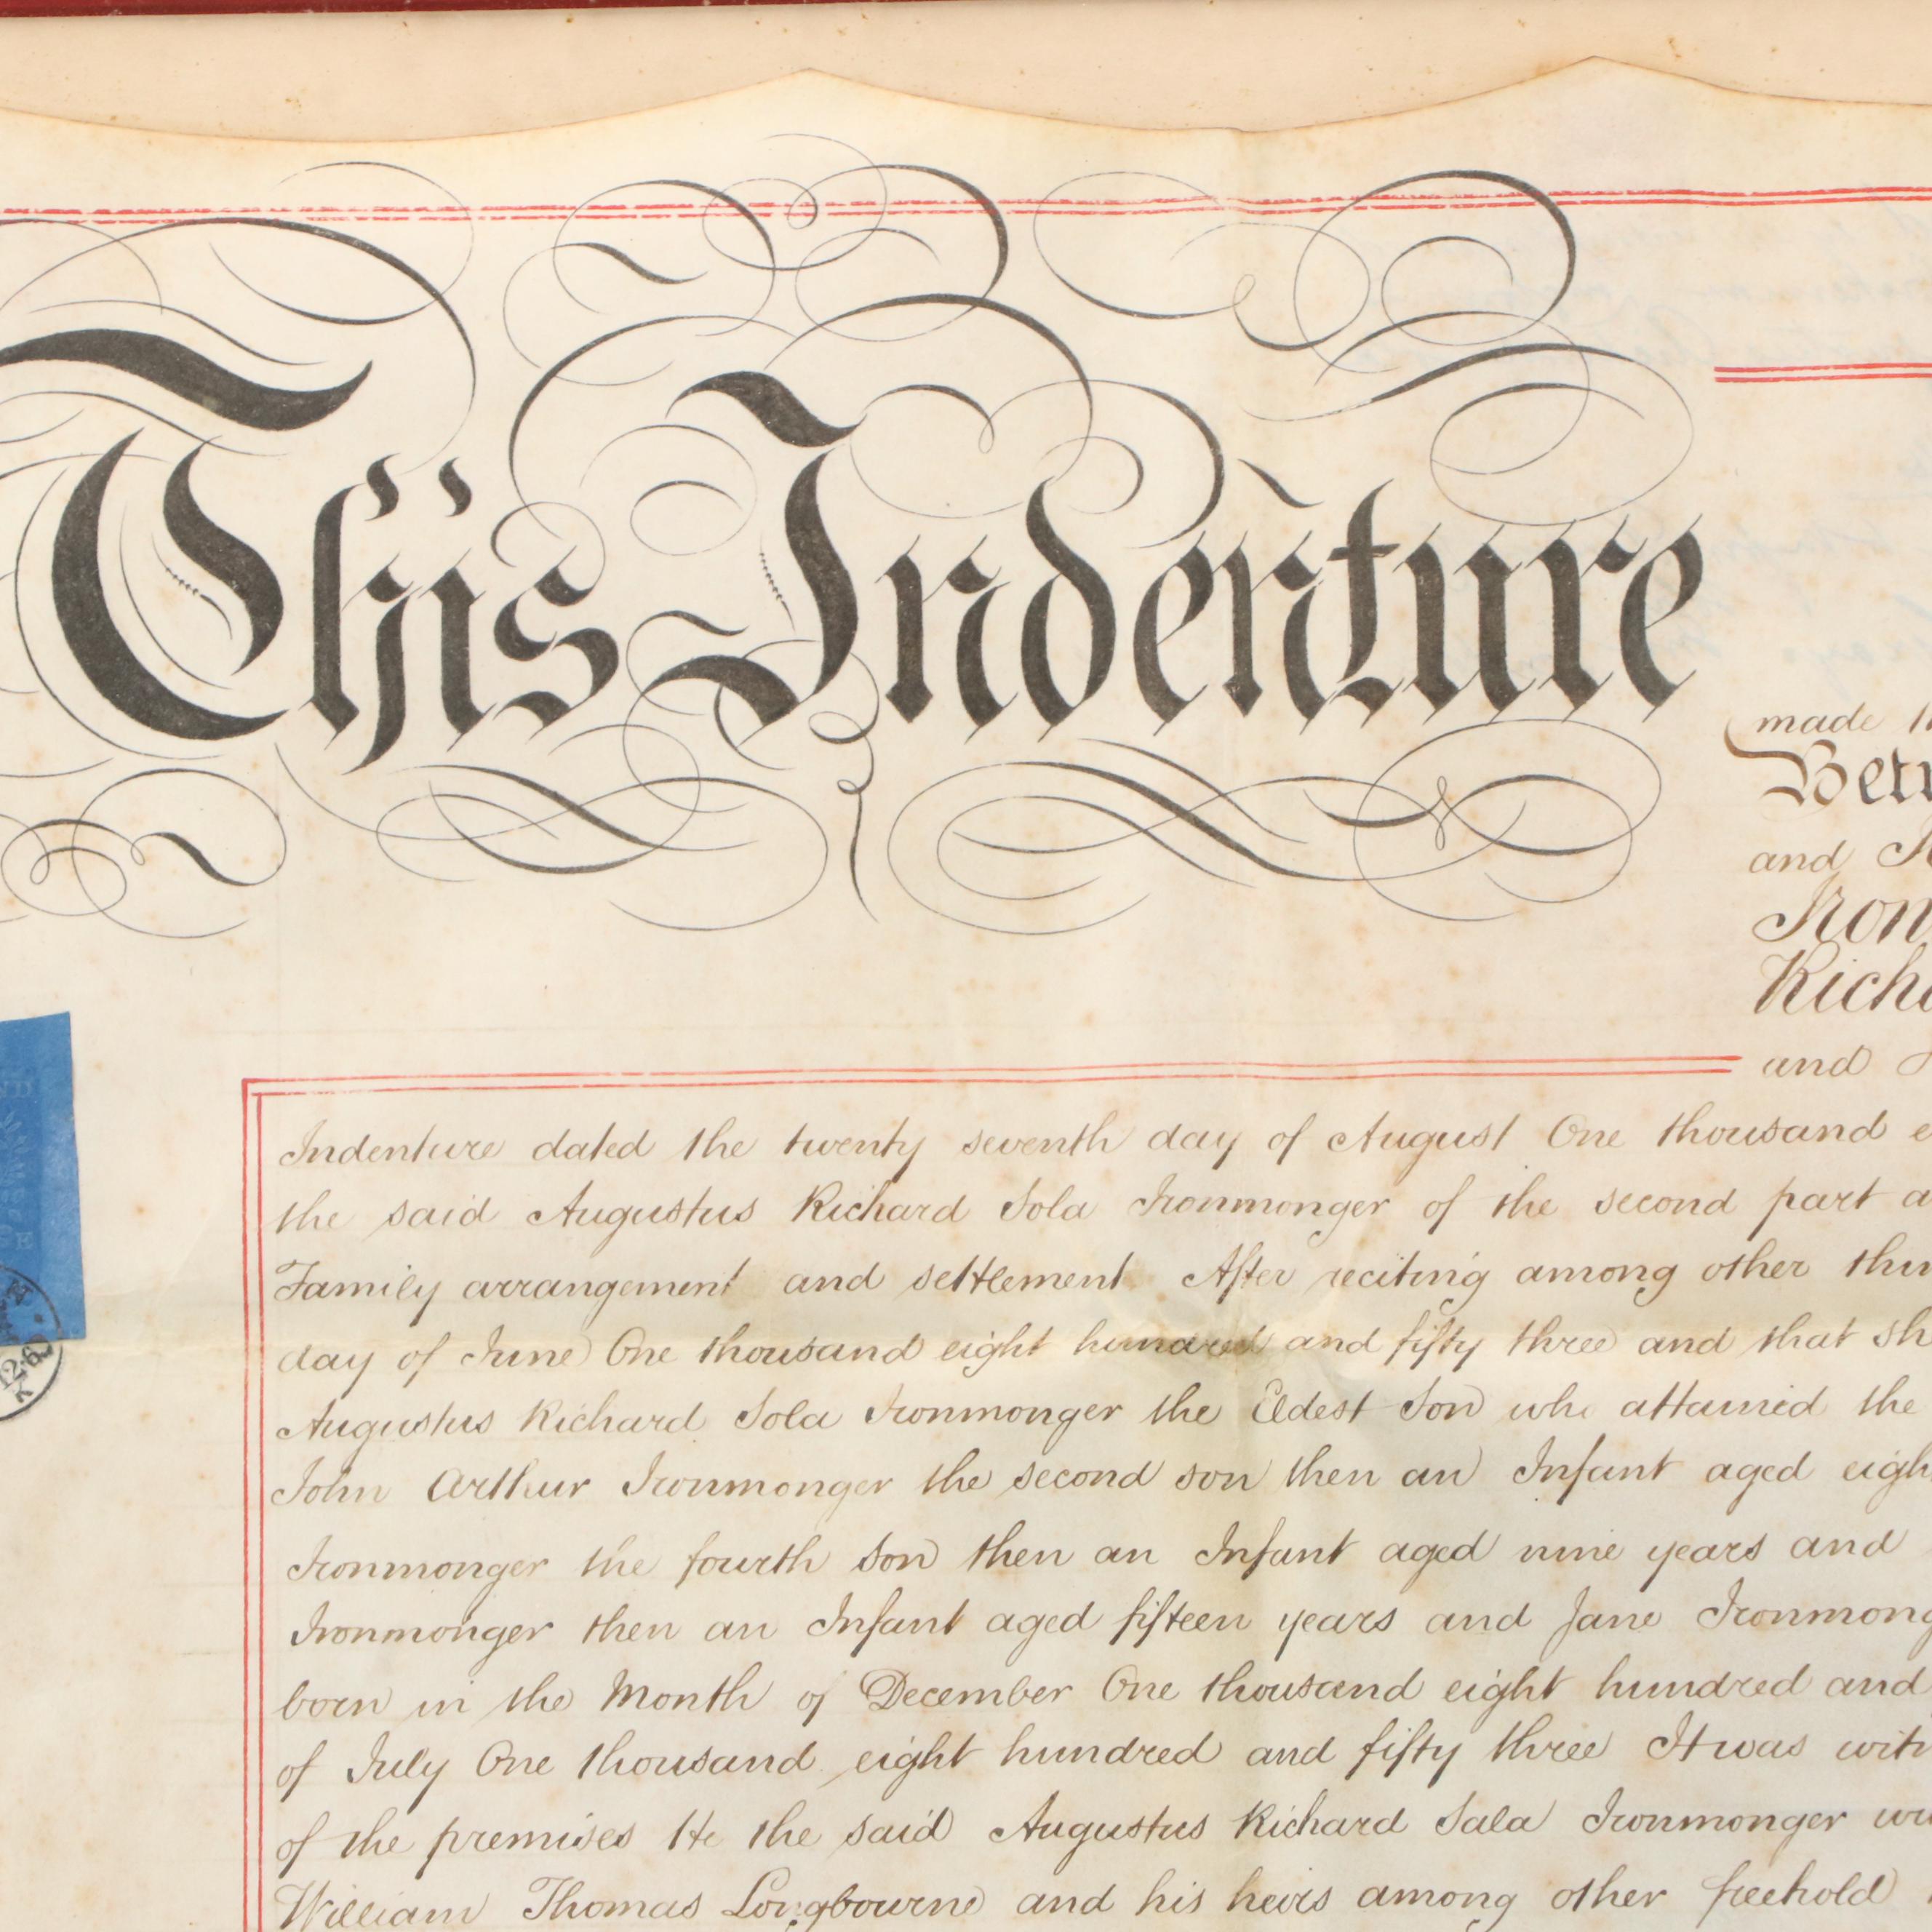 This Indenture
made
and
and
Indenture dated the twenty seventh day of August One thousand
the said Augustus Richard Sola Ironmonger of the second part
Family arrangement and settlement After reciting among other
day of June One thousand eight hundred and fifty three and that
Augustus Richard Sola Ironmonger the Eldest Son who attained the
John Arthur Ironmonger the second son then an Infant aged
Ironmonger the fourth Son then an Infant aged nine years and
Ironmonger then an Infant aged fifteen years and Jane
born in the Month of December One thousand eight hundred and
of July One thousand eight hundred and fifty three It was
of the premises He the said Augustus Richard Sala Ironmonger
William Thomas Longbourne and his heirs among other freehold
12.6
K